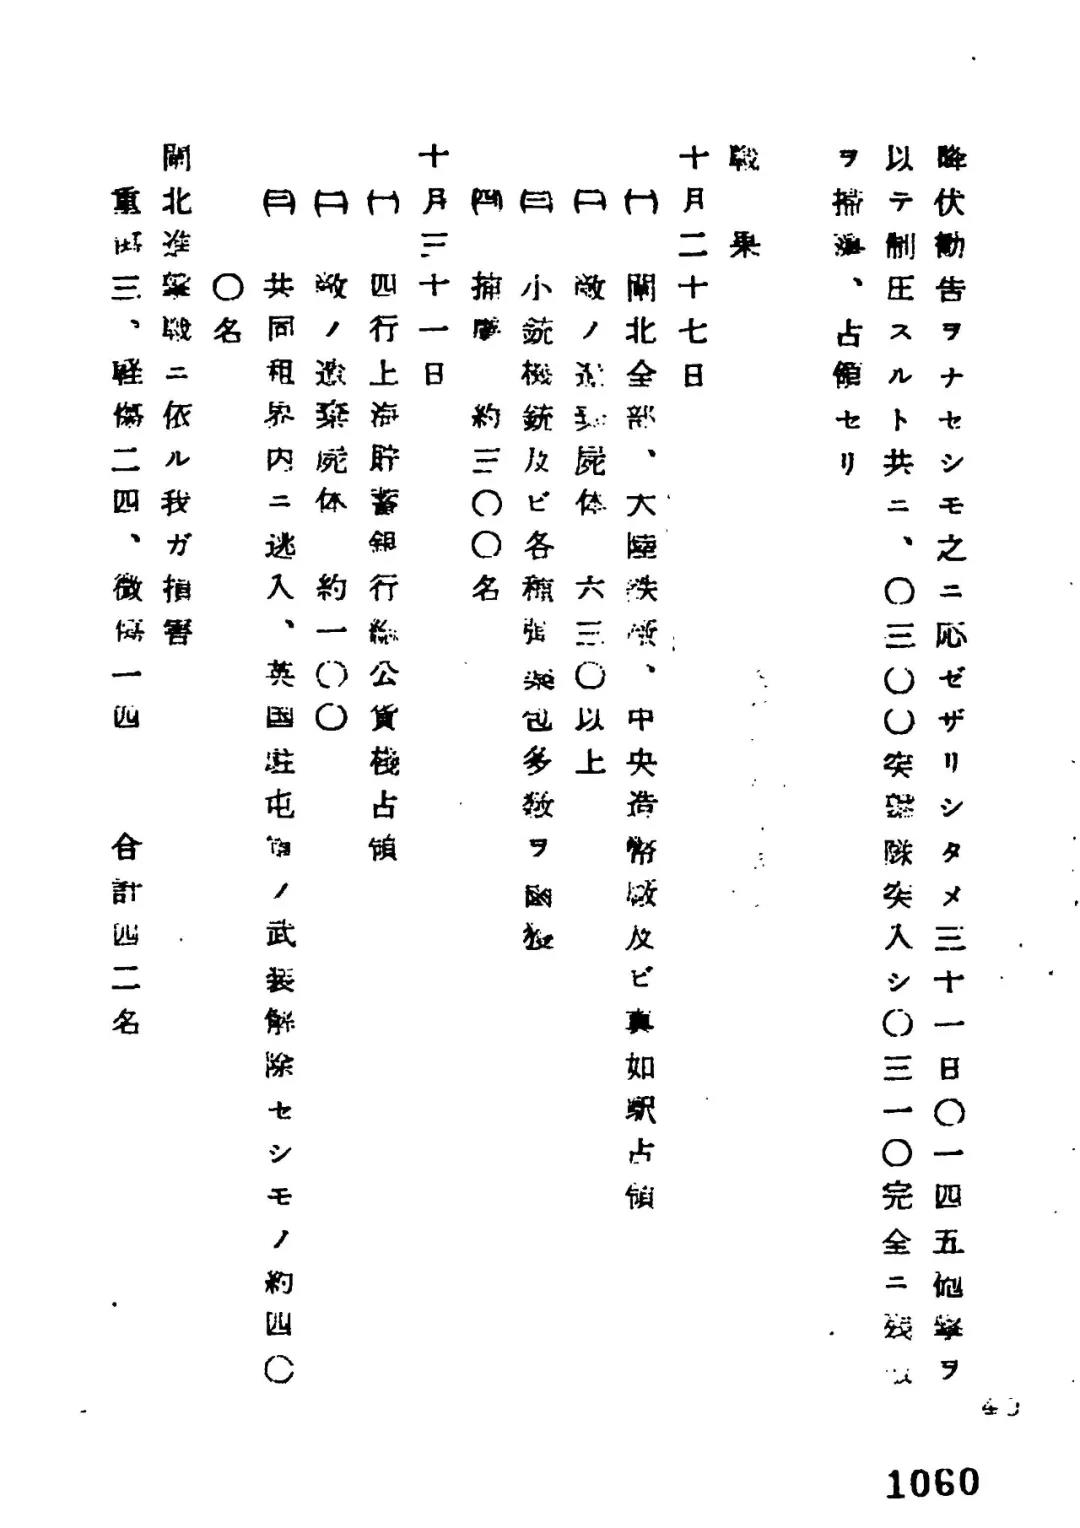 降伏勧告ヲナセシモ之ニ応ゼザリシタメ三十一日〇一四五砲撃ヲ
以テ制圧スルト共ニ、〇三〇〇突撃隊突入シ〇三一〇完全ニ残敵
ヲ掃蕩、占領セリ
戦果
十月二十七日
(一) 閘北全部、大陸鉄廠、中央造幣廠及ビ真如駅占領
(二) 敵ノ遺棄屍体 六三〇以上
(三) 小銃機銃及ビ各種弾薬包多数ヲ鹵獲
(四) 捕虜 約三〇〇名
十月三十一日
(一) 四行上海貯蓄銀行聯公貨棧占領
(二) 敵ノ遺棄屍体 約一〇〇
(三) 共同租界内ニ逃入、英国駐屯軍ノ武装解除セシモノ約四〇
〇名
閘北進撃戦ニ依ル我ガ損害
重傷三、軽傷二四、微傷一四 合計四二名
1060